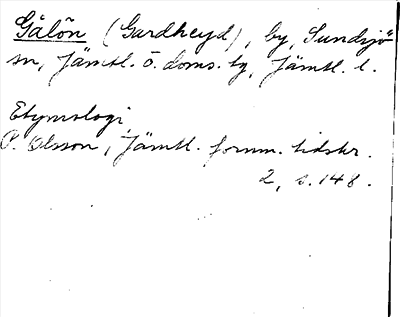 Gålön (Gardheyd), by, Sundsjö
sn, Jämtl. ö. doms. lg, Jämtl. l.
Etymologi
P. Olsson, Jämtl. fornm. tidskr.
2, s. 148.